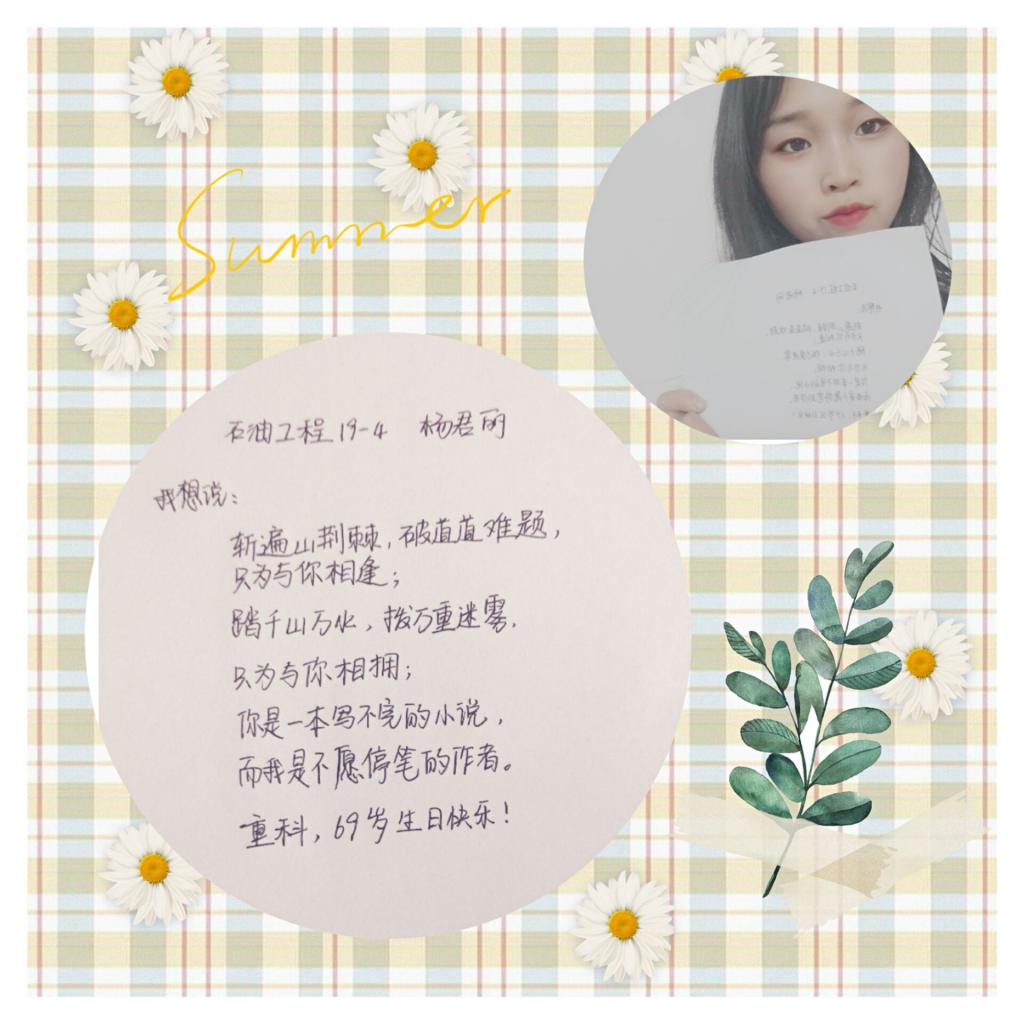 Summer
石油工程19-4 杨君丽
我想说:
斩遍山荆棘,破道道难题,
只为与你相逢;
踏千山万水,拨万重迷雾,
只为与你相拥;
你是一本写不完的小说,
而我是不愿停笔的作者。
重科,69岁生日快乐!